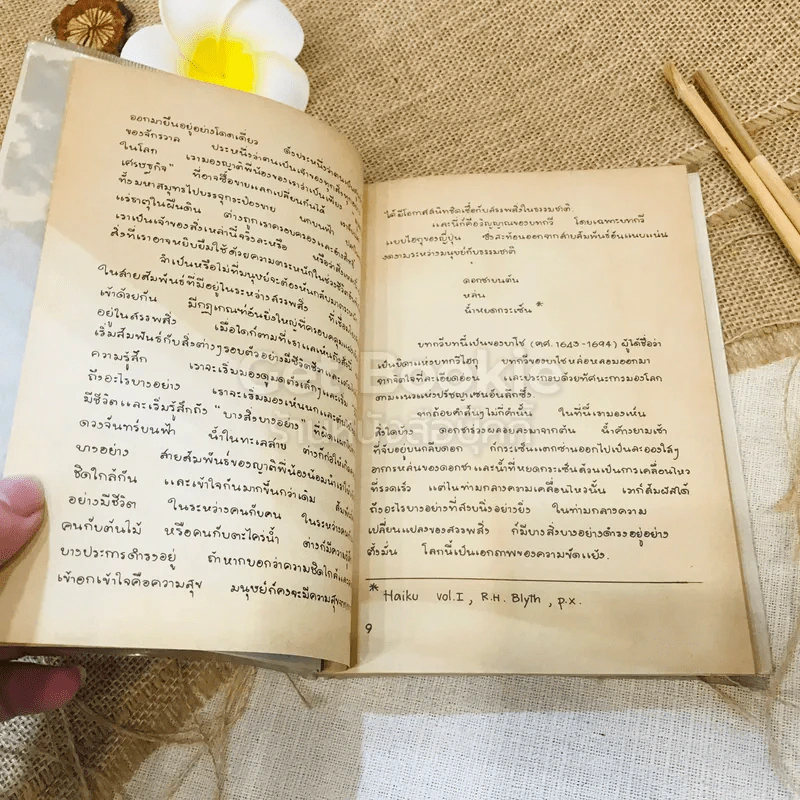 ออกมายืนอยู่อย่างโดดเดี่ยว ดังประหนึ่งว่าตนเป็น
ของจักรวาล ประหนึ่งว่าตนเป็นเจ้าของทุกสิ่ง
ในโลก เรามองญาติพี่น้องของเราว่าเป็นเพียง
เศรษฐกิจ" ที่อาจซื้อขายแลกเปลี่ยนกันได้
ทั้งมหาสมุทรไปบรรจุกระป๋องขาย นกบนฟ้า
แร่ธาตุในผืนดิน ต่างถูกเราครอบครองและ
เราเป็นเจ้าของสิ่งเหล่านี้จริงละหรือ หรือว่า
สิ่งที่เราอาจหยิบยืมใช้ด้วยความตระหนักในช่วงชีวิต
จำเป็นหรือไม่ที่มนุษย์จะต้องหันกลับมา
ในสายสัมพันธ์ที่มีอยู่ในระหว่างสรรพสิ่ง ที่เชื่อม
เข้าด้วยกัน มีกฎเกณฑ์อันยิ่งใหญ่ที่ครอบคลุม
อยู่ในสรรพสิ่ง เมื่อใดก็ตามที่เราแลเห็นถึงสิ่งนี้
เริ่มสัมพันธ์กับสิ่งต่างๆรอบตัวอย่างมีชีวิตชีวา
ความรู้สึก เราจะเริ่มมองดูมดตัวเล็กๆและเริ่ม
ถึงอะไรบางอย่าง เราจะเริ่มมองเห็นนก
มีชีวิตและเริ่มรู้สึกถึง "บางสิ่งบางอย่าง"
ดวงจันทร์บนฟ้า น้ำในทะเลสาบ ต่างก็ก่อให้เกิด
บางอย่าง สายสัมพันธ์ของญาติพี่น้องน้อมนำเราให้
ชิดใกล้กัน และเข้าใจกันมากขึ้นกว่าเดิม
อย่างมีชีวิต ในระหว่างคนกับคน ในระหว่าง
คนกับต้นไม้ หรือคนกับตะไคร่น้ำ ต่างก็มีความ
บางประการดำรงอยู่ ถ้าหากบอกว่าความชิดใกล้และ
เข้าอกเข้าใจคือความสุข มนุษย์ก็คงจะมีความสุข
ได้มีโอกาสสนิทชิดเชื้อกับสรรพสิ่งในธรรมชาติ
และนี่ก็คือวิญญาณของบทกวี โดยเฉพาะบทกวี
แบบไฮกุของญี่ปุ่น ซึ่งสะท้อนออกจากสายสัมพันธ์อันแนบแน่น
งดงามระหว่างมนุษย์กับธรรมชาติ
ดอกชาบนต้น
หล่น
น้ำหยดกระเซ็น *
บทกวีบทนี้เป็นของบาโช (คศ. 1643-1694) ผู้ได้ชื่อว่า
เป็นบิดาแห่งบทกวีไฮกุ บทกวีของบาโชหล่อหลอมออกมา
จากจิตใจที่ละเอียดอ่อน และประกอบด้วยทัศนะการมองโลก
ตามแนวแห่งปรัชญาเซนอันลึกซึ้ง
จากถ้อยคำสั้นๆไม่กี่คำนั้น ในที่นี้เรามองเห็น
สิ่งใดบ้าง ดอกชาร่วงผลอยลงมาจากต้น น้ำค้างยามเช้า
ที่จับอยู่บนกลีบดอก ก็กระเซ็นแตกซ่านออกไปเป็นละอองใสๆ
อาการหล่นของดอกชา และน้ำที่หยดกระเซ็นล้วนเป็นการเคลื่อนไหว
ที่รวดเร็ว แต่ในท่ามกลางความเคลื่อนไหวนั้น เราก็สัมผัสได้
ถึงอะไรบางอย่างที่สงบนิ่งอย่างยิ่ง ในท่ามกลางความ
เปลี่ยนแปลงของสรรพสิ่ง ก็มีบางสิ่งบางอย่างดำรงอยู่อย่าง
ตั้งมั่น โลกนี้เป็นเอกภาพของความขัดแย้ง.
* Haiku vol.I, R.H. Blyth, p.x.
9
Get Bookie